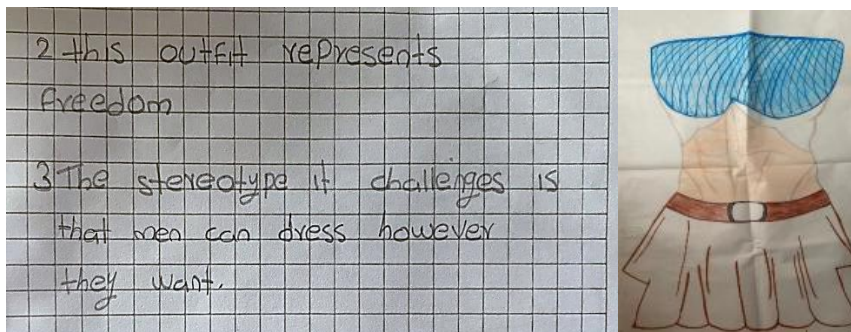 2 this outfit represents
freedom
3 The stereotype it challenges is
that men can dress however
they want.